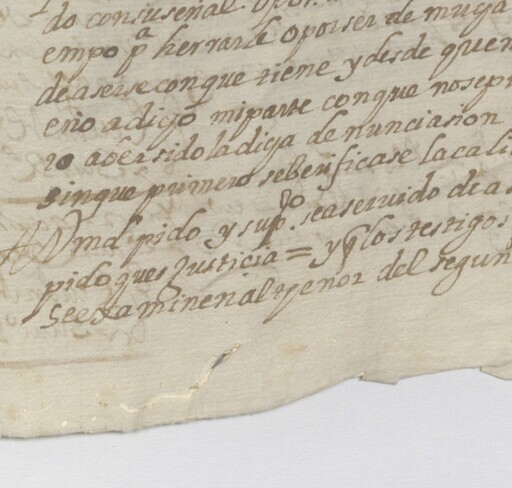 do consuseñal o por
empo pa herrarle o porser de muga
deaserse con que tiene y desde quen
eño adigo miparte con que nosepr
ro abersido la diga denunciasion
sinque primero seberificase la cali
A Vmd pido y supco seaservido de a
pido ques Justicia = y q los testigos
se examinen al tenor del segun